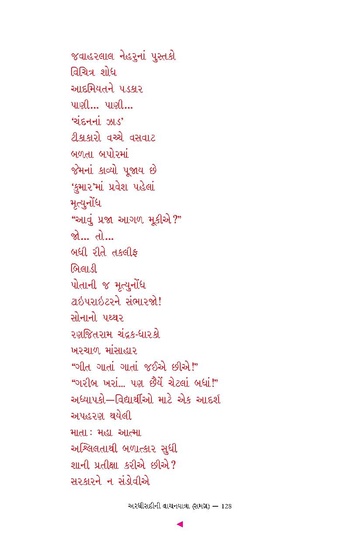 જવાહરલાલ નેહરુનાં પુસ્તકો
વિચિત્ર શોધ
આદમિયતને પડકાર
પાણી... પાણી...
‘ચંદનનાં ઝાડ’
ટીકાકારો વચ્ચે વસવાટ
બળતા બપોરમાં
જેમનાં કાવ્યો પૂજાય છે
‘કુમાર’માં પ્રવેશ પહેલાં
મૃત્યુનોંધ
“આવું પ્રજા આગળ મૂકીએ ?”
જો... તો...
બધી રીતે તકલીફ
બિલાડી
પોતાની જ મૃત્યુનોંધ
ટાઇપરાઇટરને સંભારજો!
સોનાનો પથ્થર
રણજિતરામ ચંદ્રક-ધારકો
ખરચાળ માંસાહાર
“ગીત ગાતાં ગાતાં જઈએ છીએ!”
“ગરીબ ખરાં... પણ છૈયેં ચેટલાં બધાં!”
અધ્યાપકો—વિદ્યાર્થીઓ માટે એક આદર્શ
અપહરણ થયેલી
માતા : મહા આત્મા
અશ્લિલતાથી બળાત્કાર સુધી
શાની પ્રતીક્ષા કરીએ છીએ ?
સરકારને ન સંડોવીએ
અરધીસદીની વાચનયાત્રા (સમગ્ર) — 128